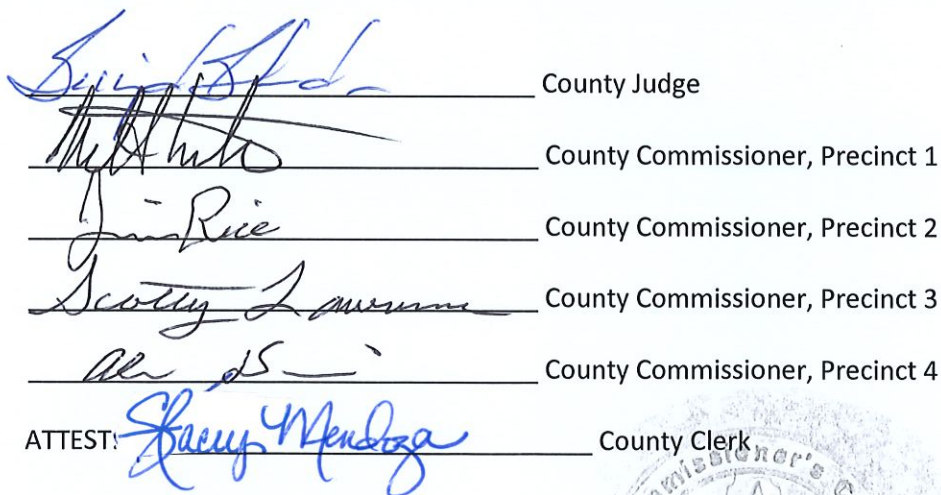 County Judge
County Commissioner, Precinct 1
Jim Rice County Commissioner, Precinct 2
Scotty Lawrence County Commissioner, Precinct 3
County Commissioner, Precinct 4
ATTEST: Stacey Mendoza County Clerk
Commissioner's